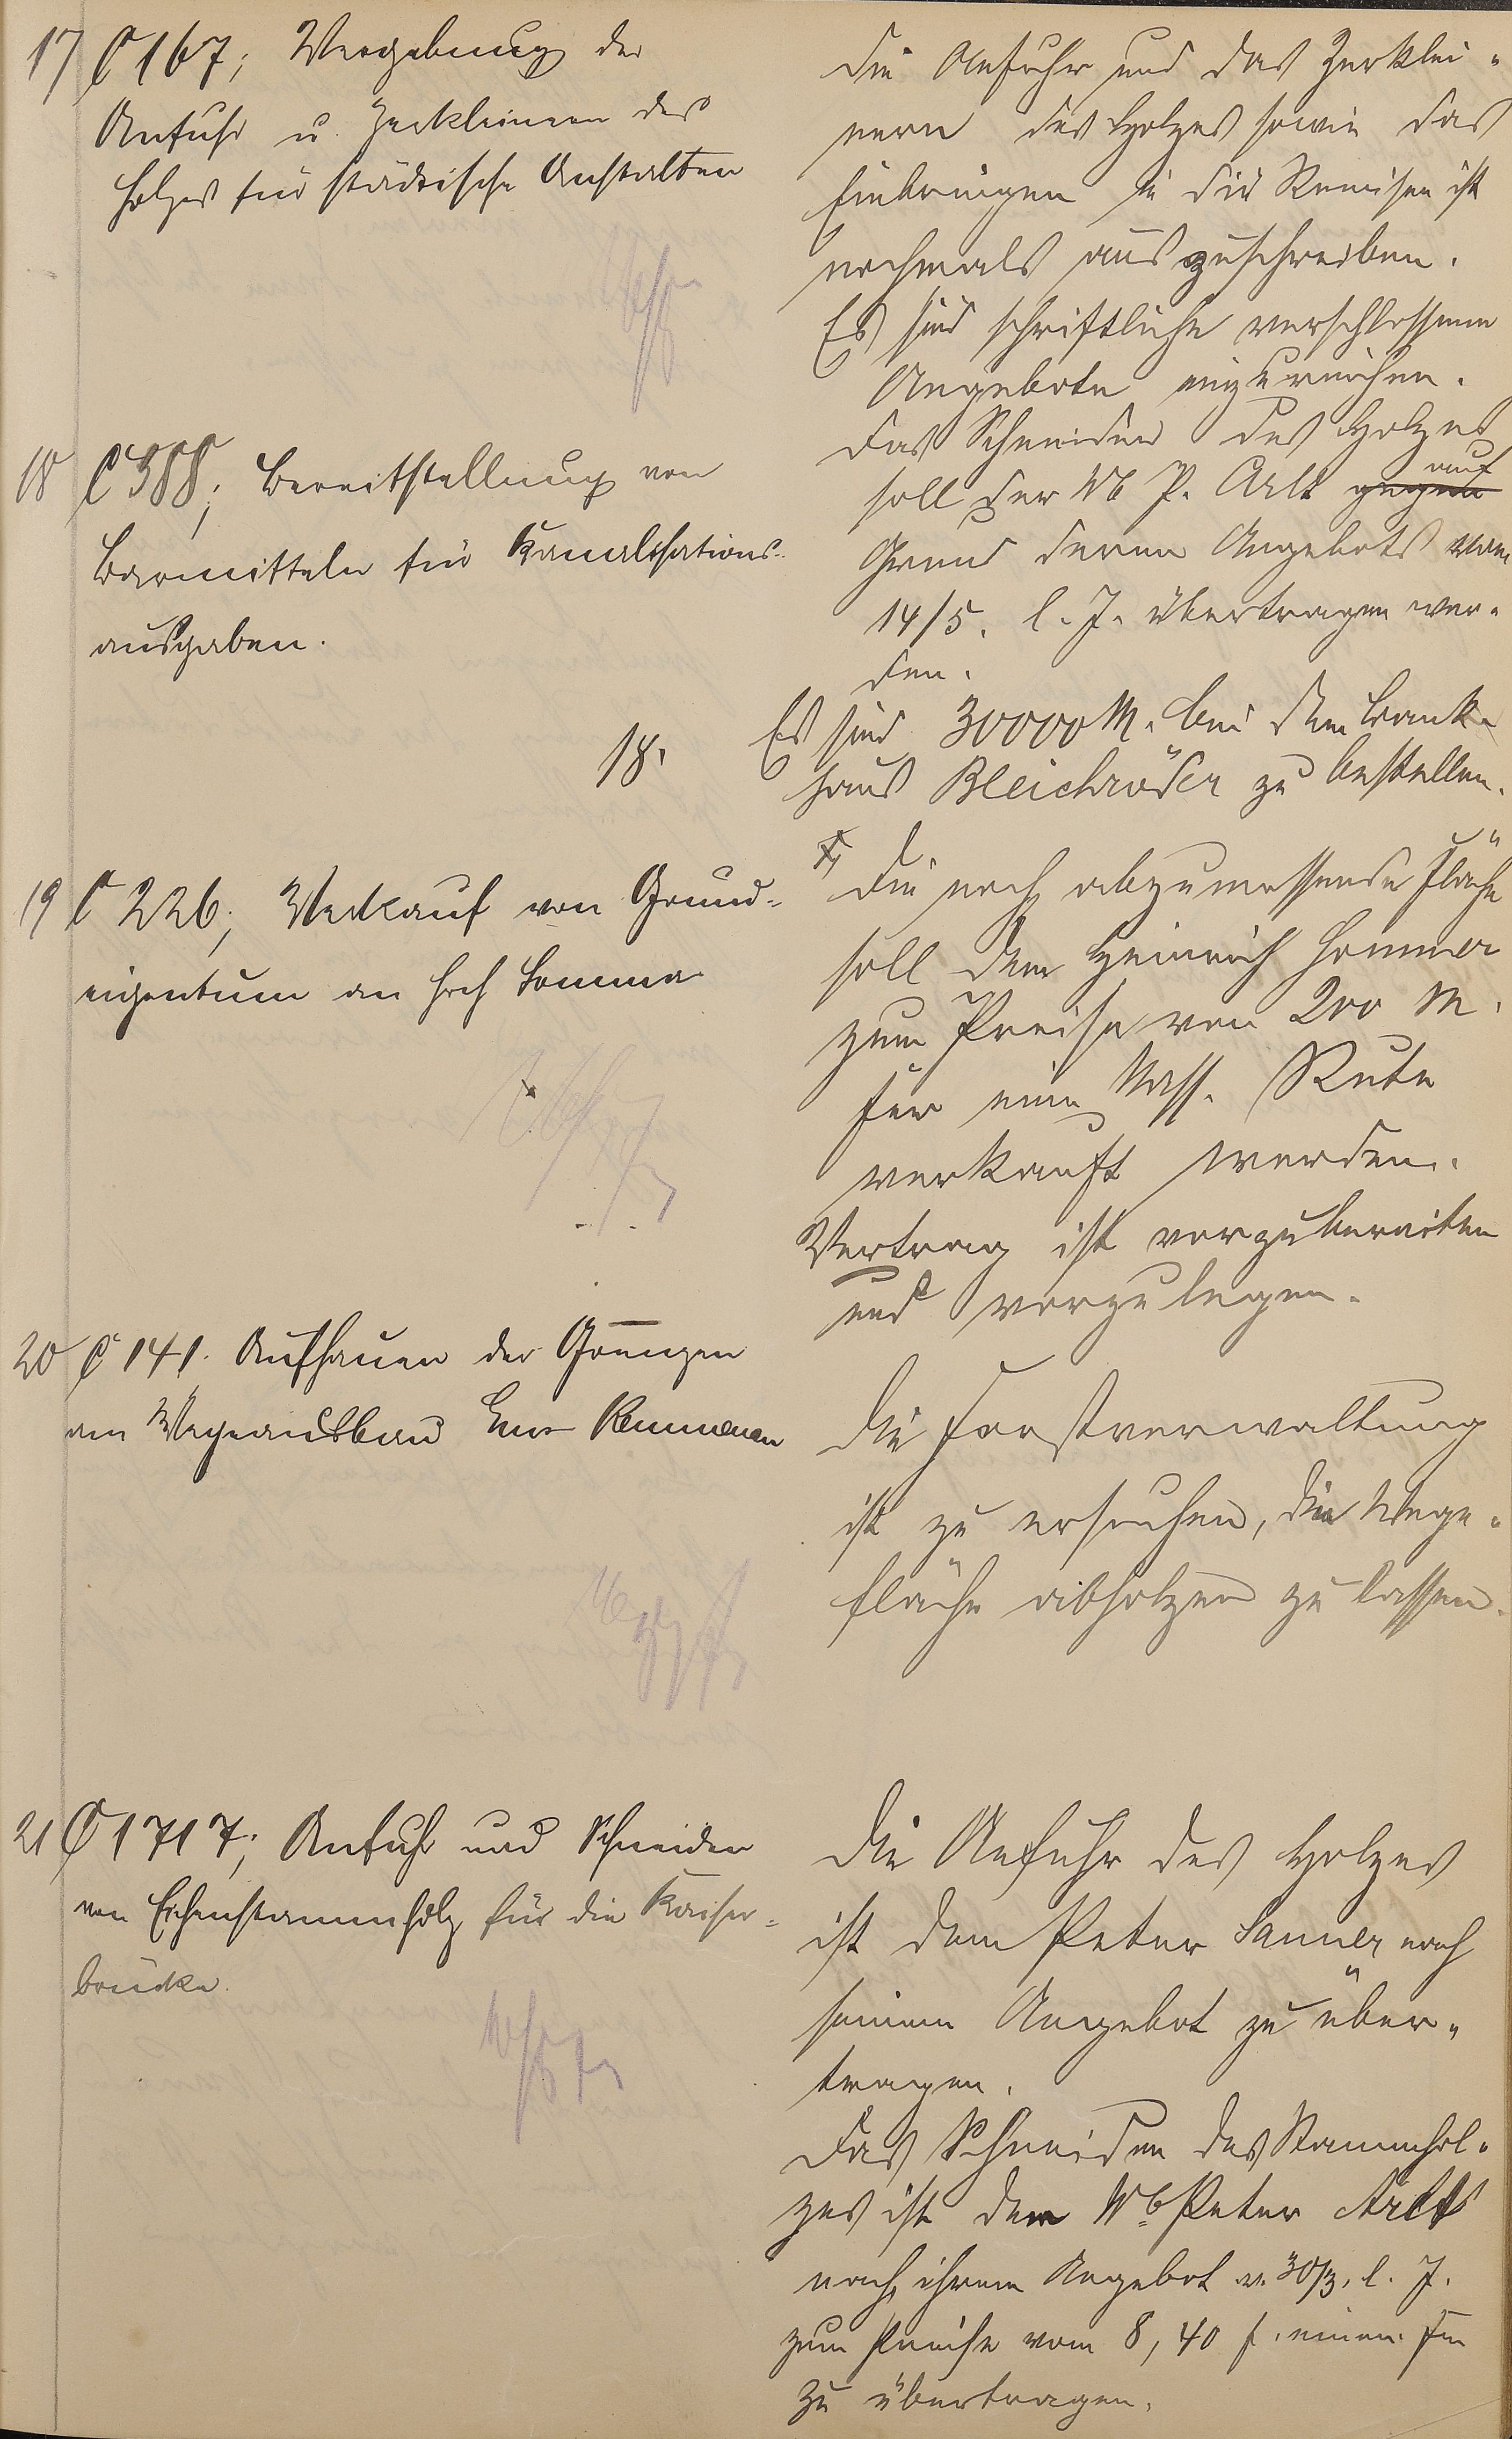 17 C 167; Vergebung der
Anfuhr u. Zerkleinern des
Holzes für städtische Anstalten
Die Anfuhr und das Zerklei-
nern des Holzes sowie das
Einbringen in die Remisen ist
nochmals auszuschreiben.
Es sind schriftliche verschlossene
Angebote einzureichen.
Das Schneiden des Holzes
soll der Wb P. Arlt gegen auf
Grund deren Angebots vom
14/5. l. J. übertragen wer-
den.
18 C 388; Bereitstellung von
Barmitteln für Kanalisations-
ausgaben.
18. Es sind 30000 M. bei dem Bank-
haus Bleichröder zu bestellen.
19 C 226; Verkauf von Grund-
eigentum an Hch Sommer
Die noch abzumessende Fläche
soll dem Heinrich Sommer
zum Preise von 200 M.
für eine Nass. Rute
verkauft werden.
Vertrag ist vorzubereiten
und vorzulegen.
20 C 141. Aufhauen der Grenzen
am Wegeausbau Ems Kemmenau
Die Forstverwaltung
ist zu ersuchen, die Wege-
fläche abholzen zu lassen.
21 C 1717; Anfuhr und Schneiden
von Eichenstammholz für die Kaiser-
brücke.
Die Anfuhr des Holzes
ist dem Peter Sanner nach
seinem Angebot zu über-
tragen.
Das Schneiden des Stammhol-
zes ist der Wb Peter Arlt
nach ihrem Angebot v. 30/3. l. J.
zum Preise vom 8,40 f. einen Fm
zu übertragen.